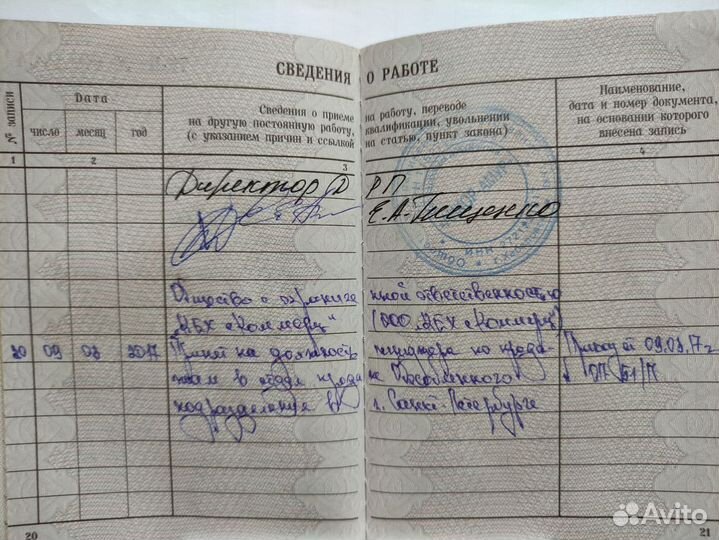 СВЕДЕНИЯ О РАБОТЕ
№ записи
Дата
число
месяц
год
Сведения о приеме на работу, переводе
на другую постоянную работу, квалификации, увольнении
(с указанием причин и ссылкой на статью, пункт закона)
Наименование,
дата и номер документа,
на основании которого
внесена запись
1
2
3
4
Директор Д РП
Е.А. Тищенко
Общество с ограниченной ответственностью
"АБХ «Коммерц" (ООО "АБХ «Коммерц")
20 09 03 2017 Принят на должность менеджера по прода- Приказ от 09.03.17 г
жам в отдел продаж Обособленного
подразделения в г. Санкт-Петербурге
20
21
Avito